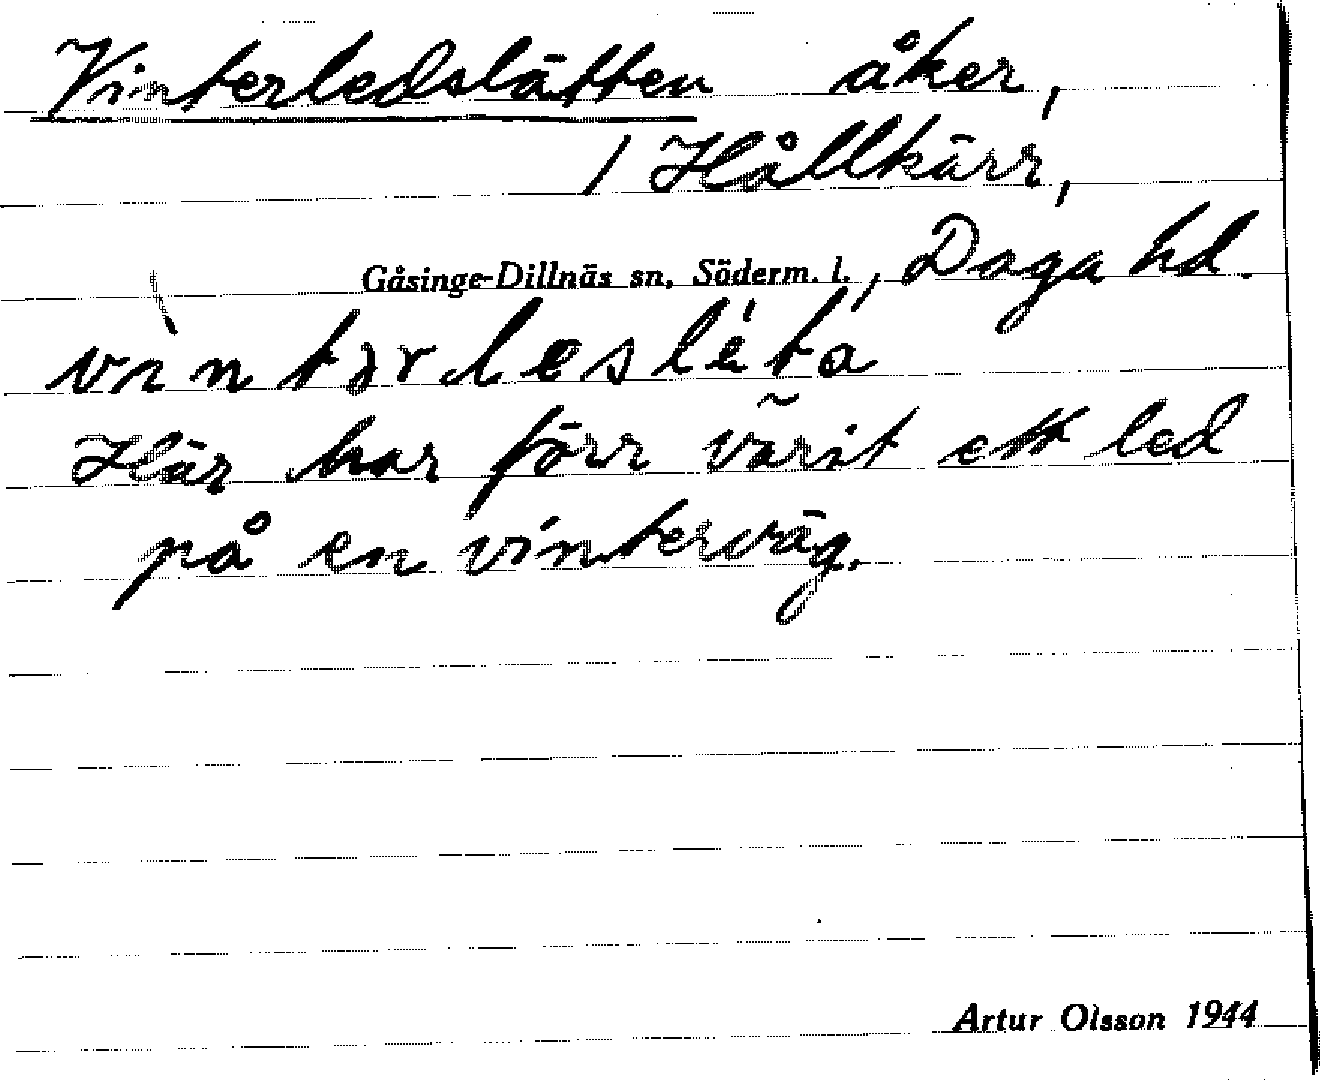 Vinterledslätten åker,
/ Hållkärr,
Gåsinge-Dillnäs sn, Söderm. l., Daga hd.
vìntərlesléta
Här har förr varit ett led
på en vinterväg.
Artur Olsson 1944